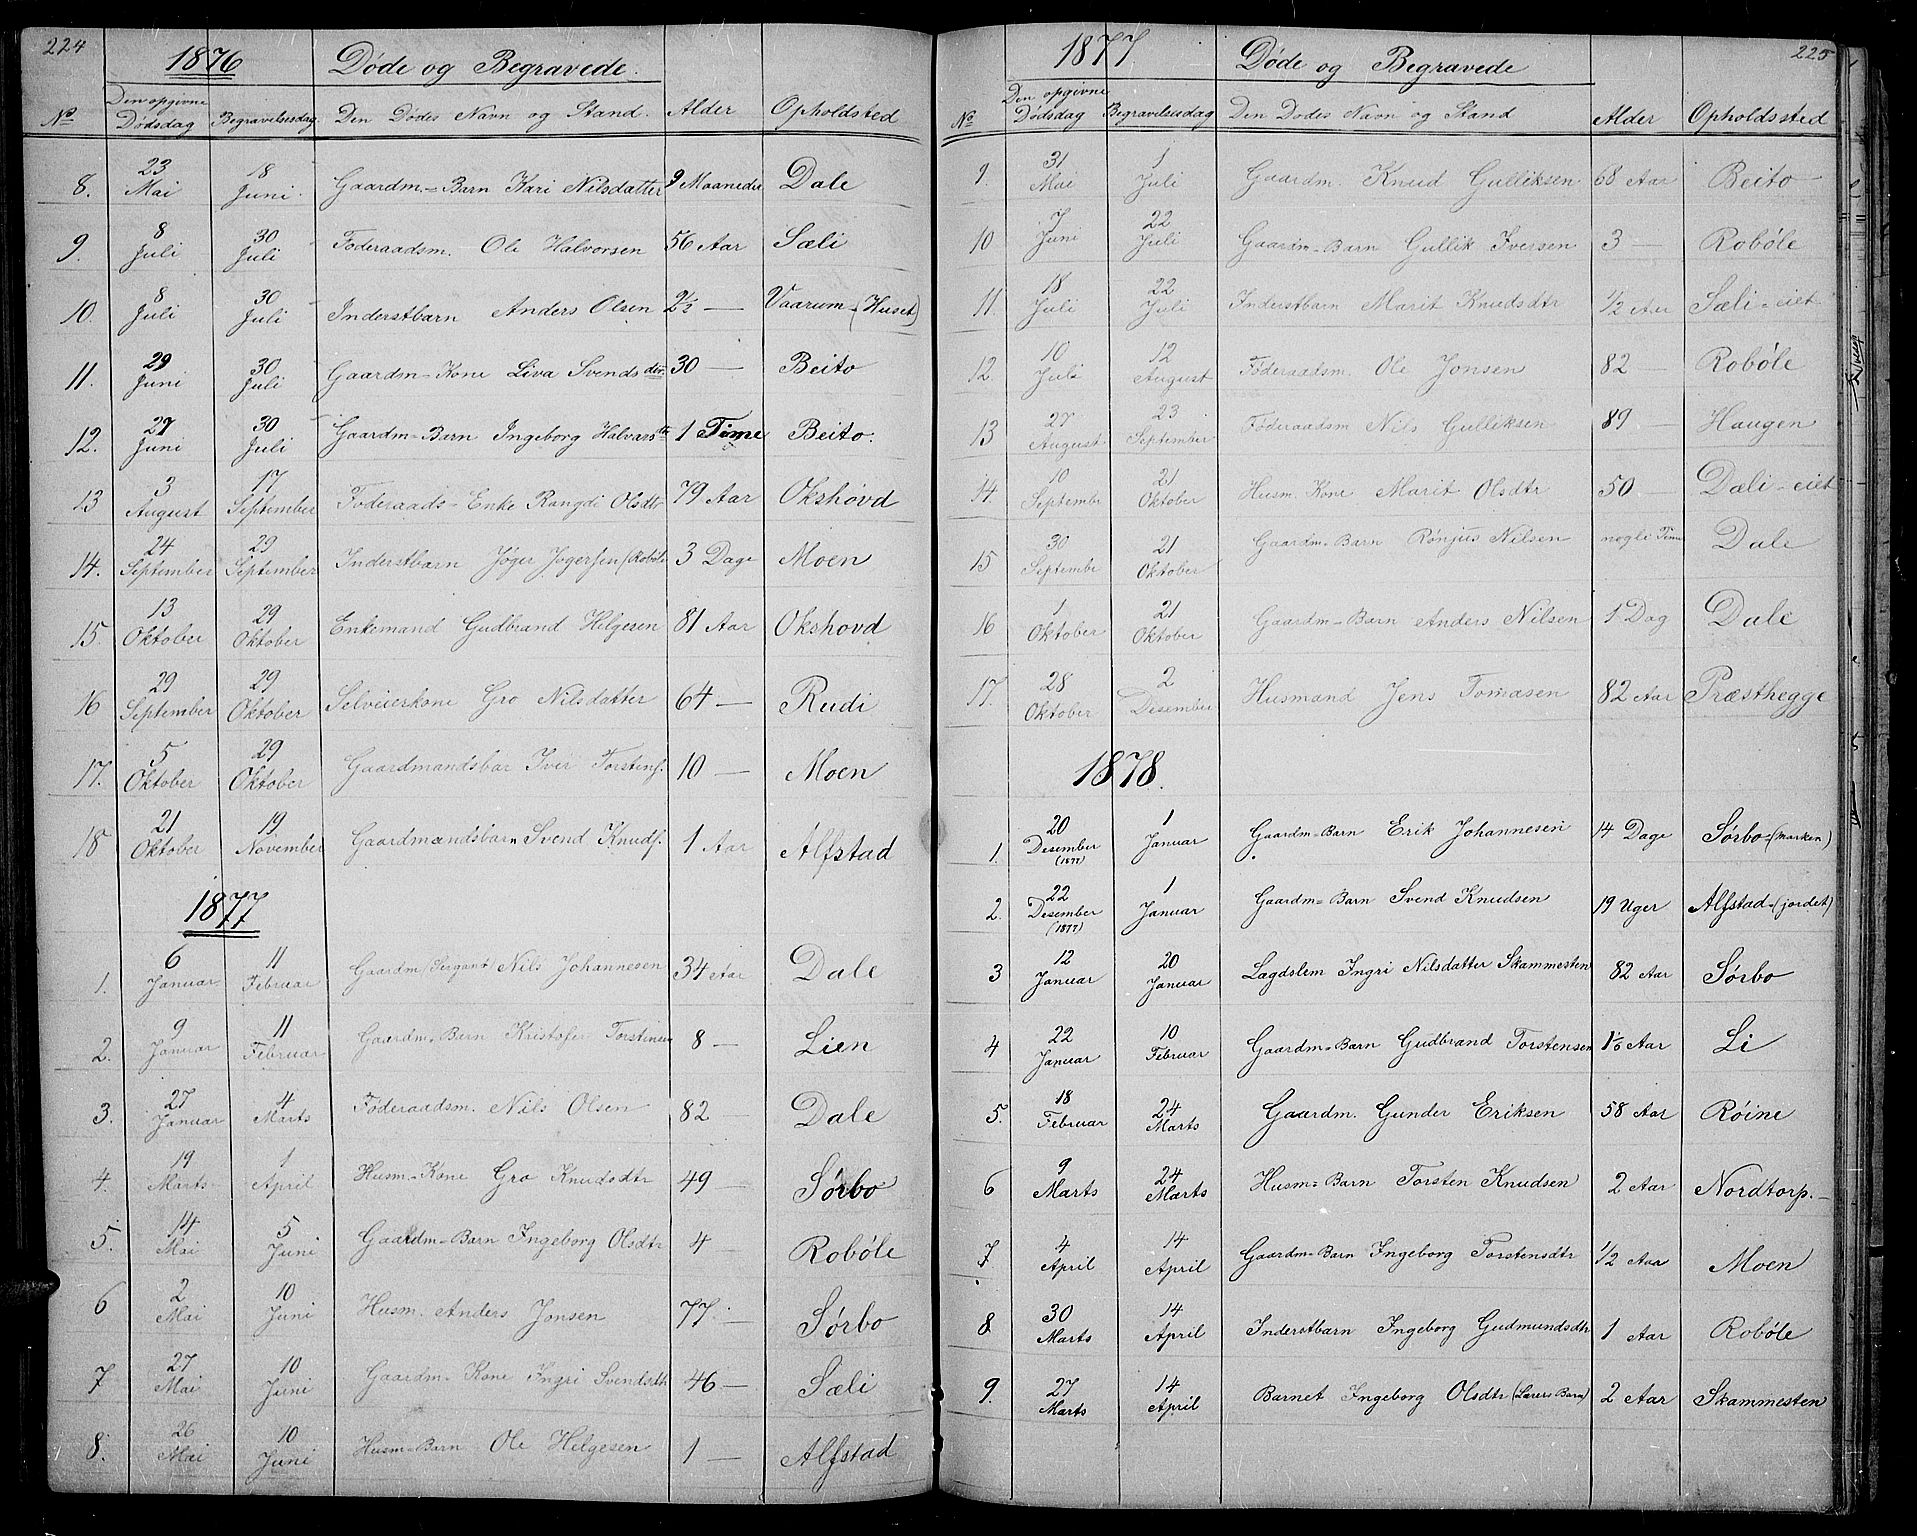 224
1876 Døde og Begravede.
No Den opgivne Dødsdag Begravelsesdag. Den Dødes Navn og Stand. Alder Opholdsted
8. 23 Mai 18 Juni. Gaardm=Barn Kari Nilsdatter 9 Maaneder Dale
9. 8 Juli 30 Juli Føderaadsm. Ole Halvorsen 56 Aar Sæli
10. 8 Juli 30 Juli Inderstbarn Anders Olsen 2½ — Vaarum-(Huset)
11. 29 Juni 30 Juli Gaardm-Kone Liva Svendsdtr. 30 — Beito
12. 27 Juni 30 Juli Gaardm=Barn Ingeborg Halvarsdtr 1 Time Beito.
13 3 August 17 September Føderaads-Enke Rangdi Olsdtr 79 Aar Okshøvd
14. 24 September 29 September Inderstbarn Jøger Jøgersen (Robøle 3 Dage Moen
15. 13 Oktober 29 Oktober Enkemand Gudbrand Helgesen 81 Aar Okshovd
16 29 September 29 Oktober Selveierkone Gro Nilsdatter 64 — Rudi
17. 5 Oktober 29 Oktober Gaardmandsbar Iver Torstens. 10 — Moen
18 21 Oktober 19 November Gaardmandsbarn Svend Knuds. 1 Aar Alfstad
1877
1. 6 Januar 11 Februar Gaardm (Sergant) Nils Johannesen 34 Aar Dale
2. 9 Januar 11 Februar Gaardm-Barn Kristofer Torstensen 8 — Lien
3. 27 Januar 4 Marts Føderaadsm. Nils Olsen 82 — Dale
4. 19 Marts 1 April Husm-Kone Gro Knudsdtr 49 — Sørbo
5. 14 Mai 5 Juni Gaardm-Barn Ingeborg Olsdtr 4 — Robøle
6 2 Mai 10 Juni Husm. Anders Jonsen 77. — Sørbo
7 27 Mai 10 Juni Gaardm-Kone Ingri Svendsdtr 46 — Sæli
8. 26 Mai 10 Juni Husm-Barn Ole Helgesen 1 — Alfstad
225
1877 Døde og Begravede
No Den opgivne Dødsdag Begravelsesdag Den Dødes Navn og Stand Alder Opholdssted
9. 31 Mai 1 Juli Gaardm. Knud Gulliksen 68 Aar Beito
10 7 Juni 22 Juli Gaardm-Barn Gullik Iversen 3 — Robøle
11. 18 Juli 22 Juli Inderstbarn Marit Knudsdtr ½ Aar Sæli-eiet
12. 10 Juli 12 August Føderaadsm. Ole Jonsen 82 — Robøle
13 27 August 23 September Føderaadsm Nils Gulliksen 89 — Haugen
14. 10 September 21 Oktober Husm. Kone Marit Olsdtr 50 — Dæli-eiet
15 30 Septembr 21 Oktober Gaardm-Barn Rønjus Nilsen nogle Time Dale
16 1 Oktober 21 Oktober Gaardm-Barn Anders Nilsen 1 Dag Dale
17. 28 Oktober 2 Desember Husmand Jens Tomasen 82 Aar Præsthegge
1878.
1. 20 Desember (1877) 1 Januar Gaardm-Barn Erik Johannesen 14 Dage Sørbo-(marken)
2. 22 Desember (1877) 1 Januar Gaardm-Barn Svend Knudsen 19 Uger Alfstad-(jordet)
3 12 Januar 20 Januar Lagdslem Ingri Nilsdatter Skammesten 82 Aar Sørbo
4 22 Januar 10 Februar Gaardm-Barn Gudbrand Torstensen Aar Li
5. 18 Februar 24 Marts Gaardm. Gunder Eriksen 58 Aar Røine
6 9 Marts 24 Marts Husm-Barn Torsten Knudsen 2 Aar Nordtorp.—
7 4 April 14 April Gaardm-Barn Ingeborg Torstensdtr ½ Aar Moen
8 30 Marts 14 April Inderstbarn Ingeborg Gudmundsdtr 1 Aar Robøle
9. 27 Marts 14 April Barnet Ingeborg Olsdtr (Lærers Barn) 2 Aar Skammesten